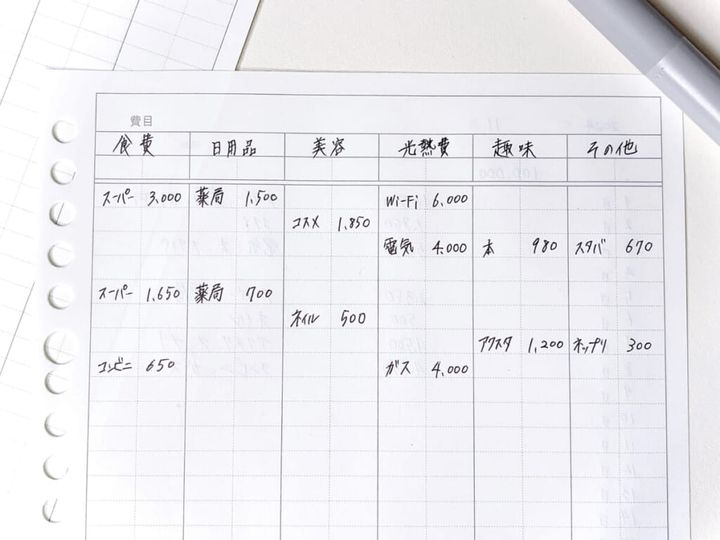 費目
食費 日用品 美容 光熱費 趣味 その他
スーパー 3,000 薬局 1,500 Wi-Fi 6,000
コスメ 1,850
電気 4,000 本 980 スタバ 670
スーパー 1,650 薬局 700
ネイル 500
アクスタ 1,200 ネップリ 300
コンビニ 650 ガス 4,000